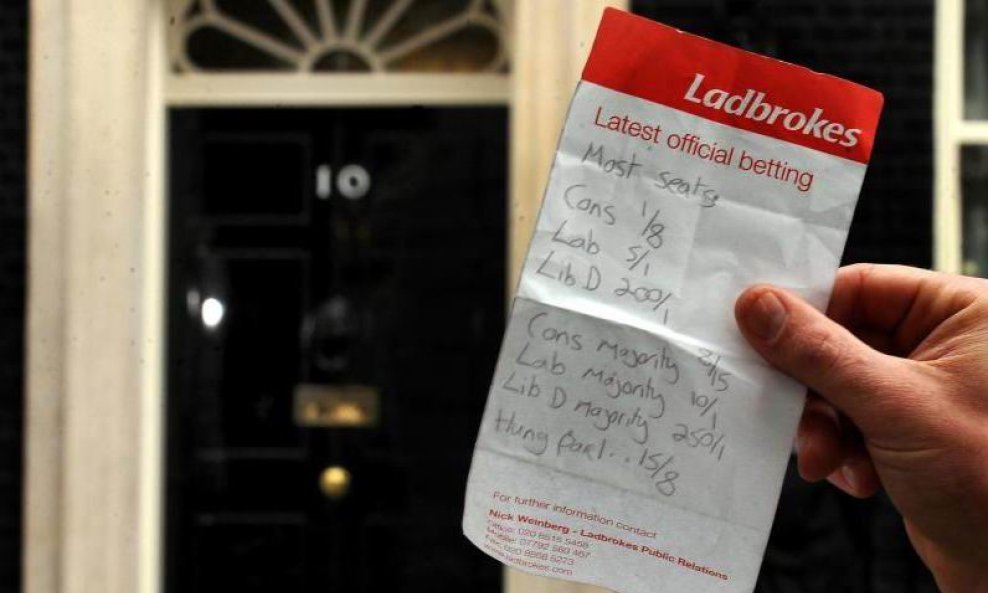 10
Ladbrokes
Latest official betting
Most seats:
Cons 1/8
Lab 5/1
Lib D 200/1
Cons Majority 2/15
Lab Majority 10/1
Lib D Majority 250/1
Hung Parl.. 15/8
For further information contact
Nick Weinberg - Ladbrokes Public Relations
Office: 020 8515 5458
Mobile: 07792 560 467
Fax: 020 8868 5273
www.ladbrokes.com